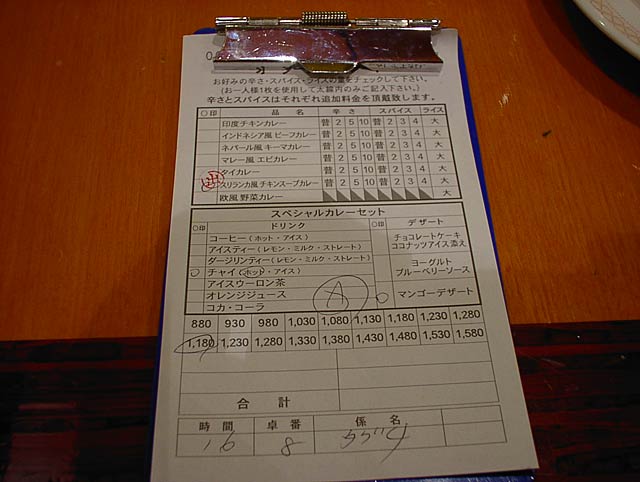 お好みの辛さ・スパイス・ライスの量をチェックして下さい。
(お一人様1枚を使用して太線内のみご記入下さい。)
辛さとスパイスはそれぞれ追加料金を頂戴致します。
〇印 品名 辛さ スパイス ライス
印度チキンカレー 普 2 5 10 普 2 3 4 大
インドネシア風ビーフカレー 普 2 5 10 普 2 3 4 大
ネパール風キーマカレー 普 2 5 10 普 2 3 4 大
マレー風エビカレー 普 2 5 10 普 2 3 4 大
タイカレー 普 2 5 10 普 2 3 4 大
スリランカ風チキンスープカレー 普 2 5 10 普 2 3 4 大
欧風野菜カレー 大
スペシャルカレーセット
〇印 ドリンク 〇印 デザート
コーヒー(ホット・アイス)
アイスティー(レモン・ミルク・ストレート)
ダージリンティー(レモン・ミルク・ストレート)
チャイ(ホット・アイス)
アイスウーロン茶
オレンジジュース
コカ・コーラ
チョコレートケーキ
ココナッツアイス添え
ヨーグルト
ブルーベリーソース
マンゴーデザート
A
880 930 980 1,030 1,080 1,130 1,180 1,230 1,280
1,180 1,230 1,280 1,330 1,380 1,430 1,480 1,530 1,580
合計
時間 卓番 係名
16 8